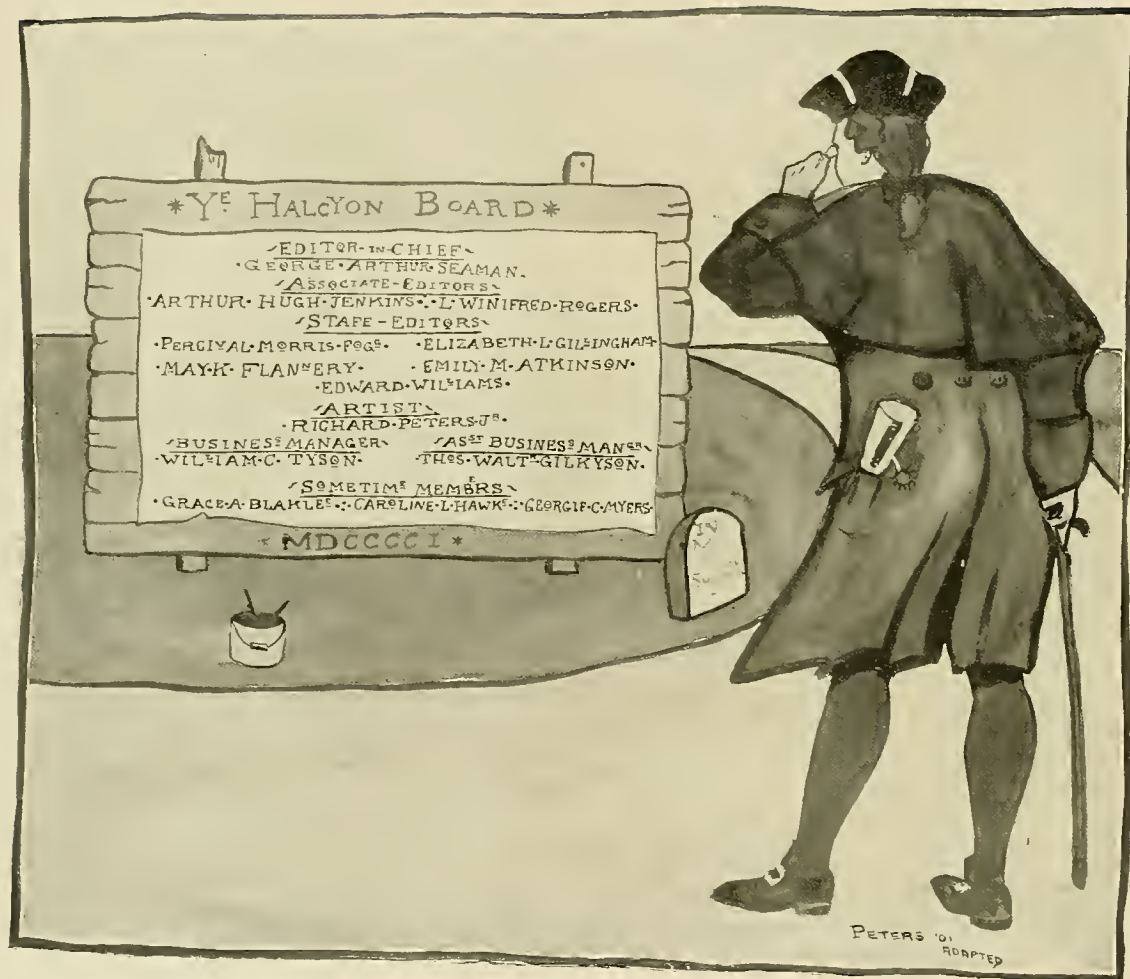 *YE HALCYON BOARD*
EDITOR-IN-CHIEF
·GEORGE·ARTHUR·SEAMAN·
ASSOCIATE-EDITORS
·ARTHUR·HUGH·JENKINS·:·L·WINIFRED·ROGERS·
STAFF-EDITORS
·PERCIVAL·MORRIS·FOGG· ·ELIZABETH·L·GILLINGHAM·
·MAY·K·FLANNERY· ·EMILY·M·ATKINSON·
·EDWARD·WILLIAMS·
ARTIST
·RICHARD·PETERS·JR·
BUSINESS MANAGER ASST BUSINESS MANGR
·WILLIAM·C·TYSON· ·THOS·WALTR·GILKYSON·
SOMETIME MEMBERS
·GRACE·A·BLAKLEE·:·CAROLINE·L·HAWKE·:·GEORGIE·C·MYERS·
*MDCCCCI*
PETERS '01
ADAPTED